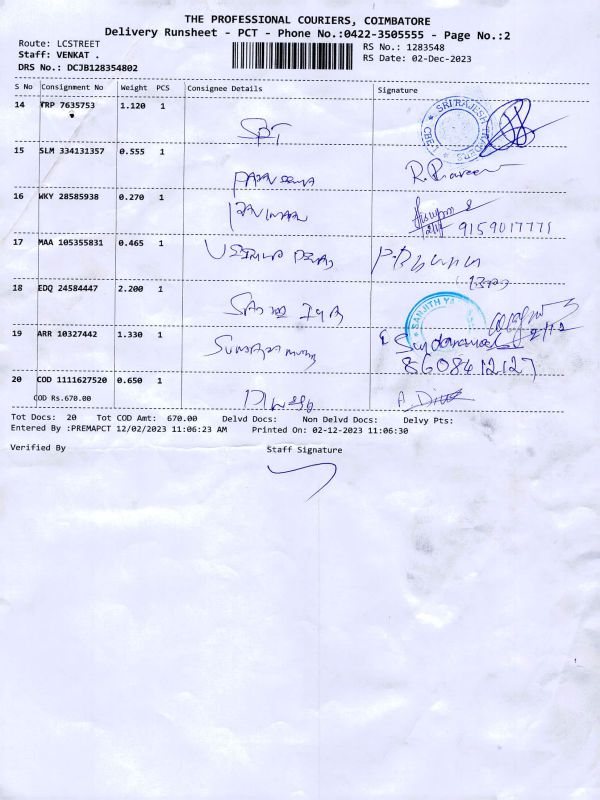 THE PROFESSIONAL COURIERS, COIMBATORE
Delivery Runsheet - PCT - Phone No.:0422-3505555 - Page No.:2
Route: LCSTREET
Staff: VENKAT .
DRS No.: DCJB128354802
RS No.: 1283548
RS Date: 02-Dec-2023
S No Consignment No Weight PCS Consignee Details Signature
14 TRP 7635753 1.120 1
SRI RAJESH TRADERS
CBE-1
15 SLM 334131357 0.555 1
R. Praveen
16 WKY 28585938 0.270 1
9159017771
17 MAA 105355831 0.465 1
18 EDQ 24584447 2.200 1
SANJITH
19 ARR 10327442 1.330 1
8608412127
20 COD 1111627520 0.650 1
COD Rs.670.00
Tot Docs: 20 Tot COD Amt: 670.00 Delvd Docs: Non Delvd Docs: Delvy Pts:
Entered By :PREMAPCT 12/02/2023 11:06:23 AM Printed On: 02-12-2023 11:06:30
Verified By Staff Signature